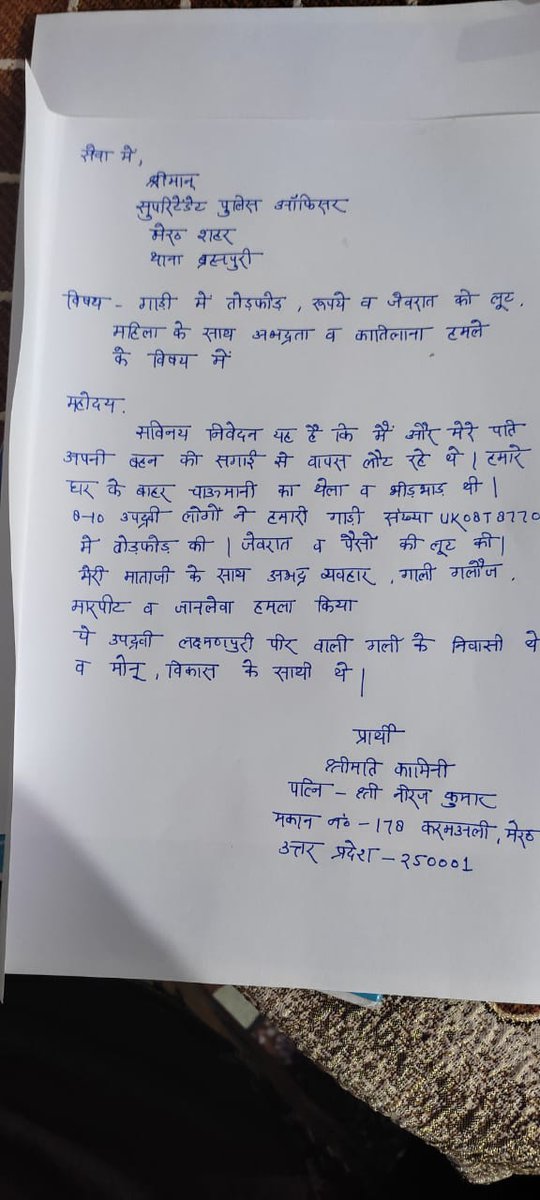 सेवा में,
श्रीमान्
सुपरिटेंडेंट पुलिस ऑफिसर
मेरठ शहर
थाना ब्रह्मपुरी
विषय - गाड़ी में तोड़फोड़, रूपये व जेवरात की लूट,
महिला के साथ अभद्रता व कातिलाना हमले
के विषय में
महोदय,
सविनय निवेदन यह है कि मैं और मेरे पति
अपनी बहन की सगाई से वापस लौट रहे थे | हमारे
घर के बाहर चाऊमानी का थेला व भीड़भाड़ थी |
8-10 उपद्रवी लोगों ने हमारी गाड़ी संख्या UK08T8770
में तोड़फोड़ की | जेवरात व पैसों की लूट की |
मेरी माताजी के साथ अभद्र व्यवहार, गाली गलौज,
मारपीट व जानलेवा हमला किया
ये उपद्रवी लक्ष्मणपुरी पीर वाली गली के निवासी थे
व मोनू, विकास के साथी थे |
प्रार्थी
श्रीमति कामिनी
पत्नि - श्री नीरज कुमार
मकान नं० - 178 करमअली, मेरठ
उत्तर प्रदेश - 250001